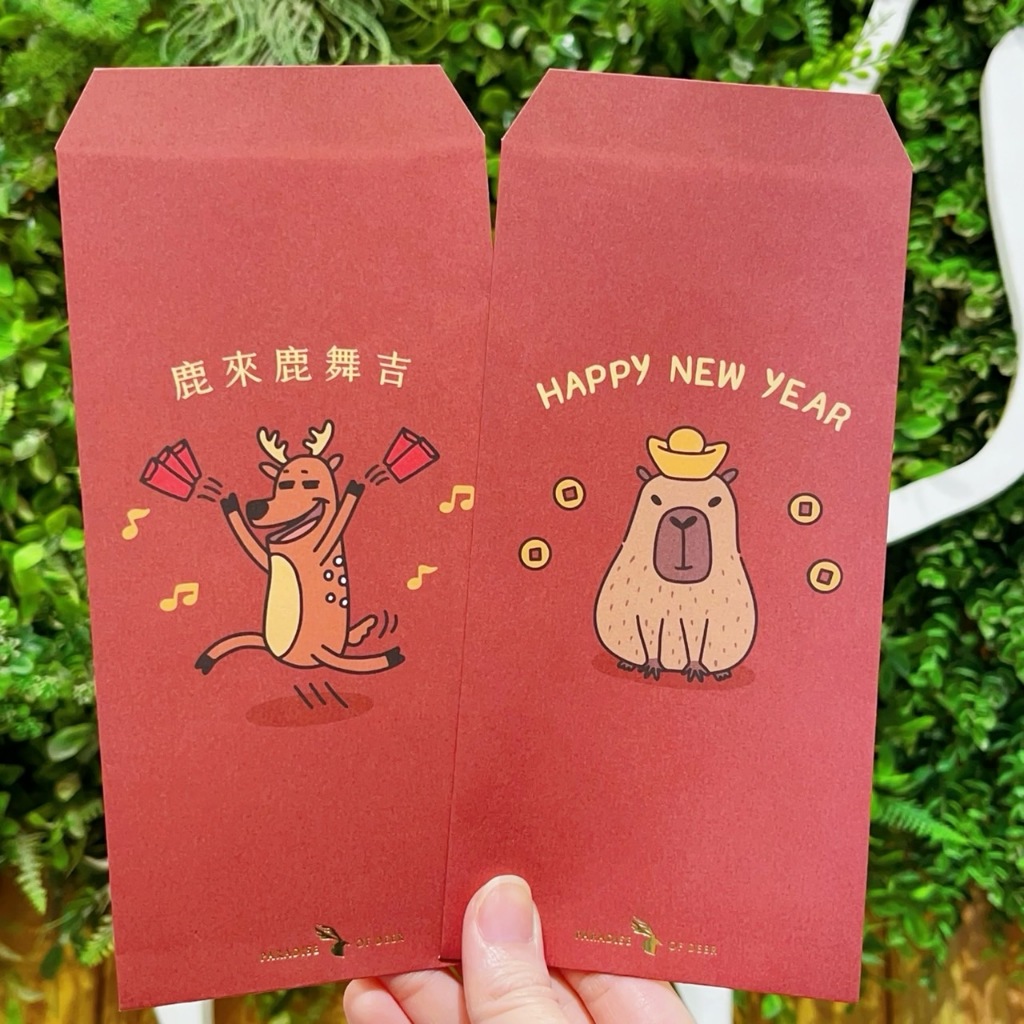 鹿來鹿舞吉
HAPPY NEW YEAR
PARADISE OF DEER
PARADISE OF DEER